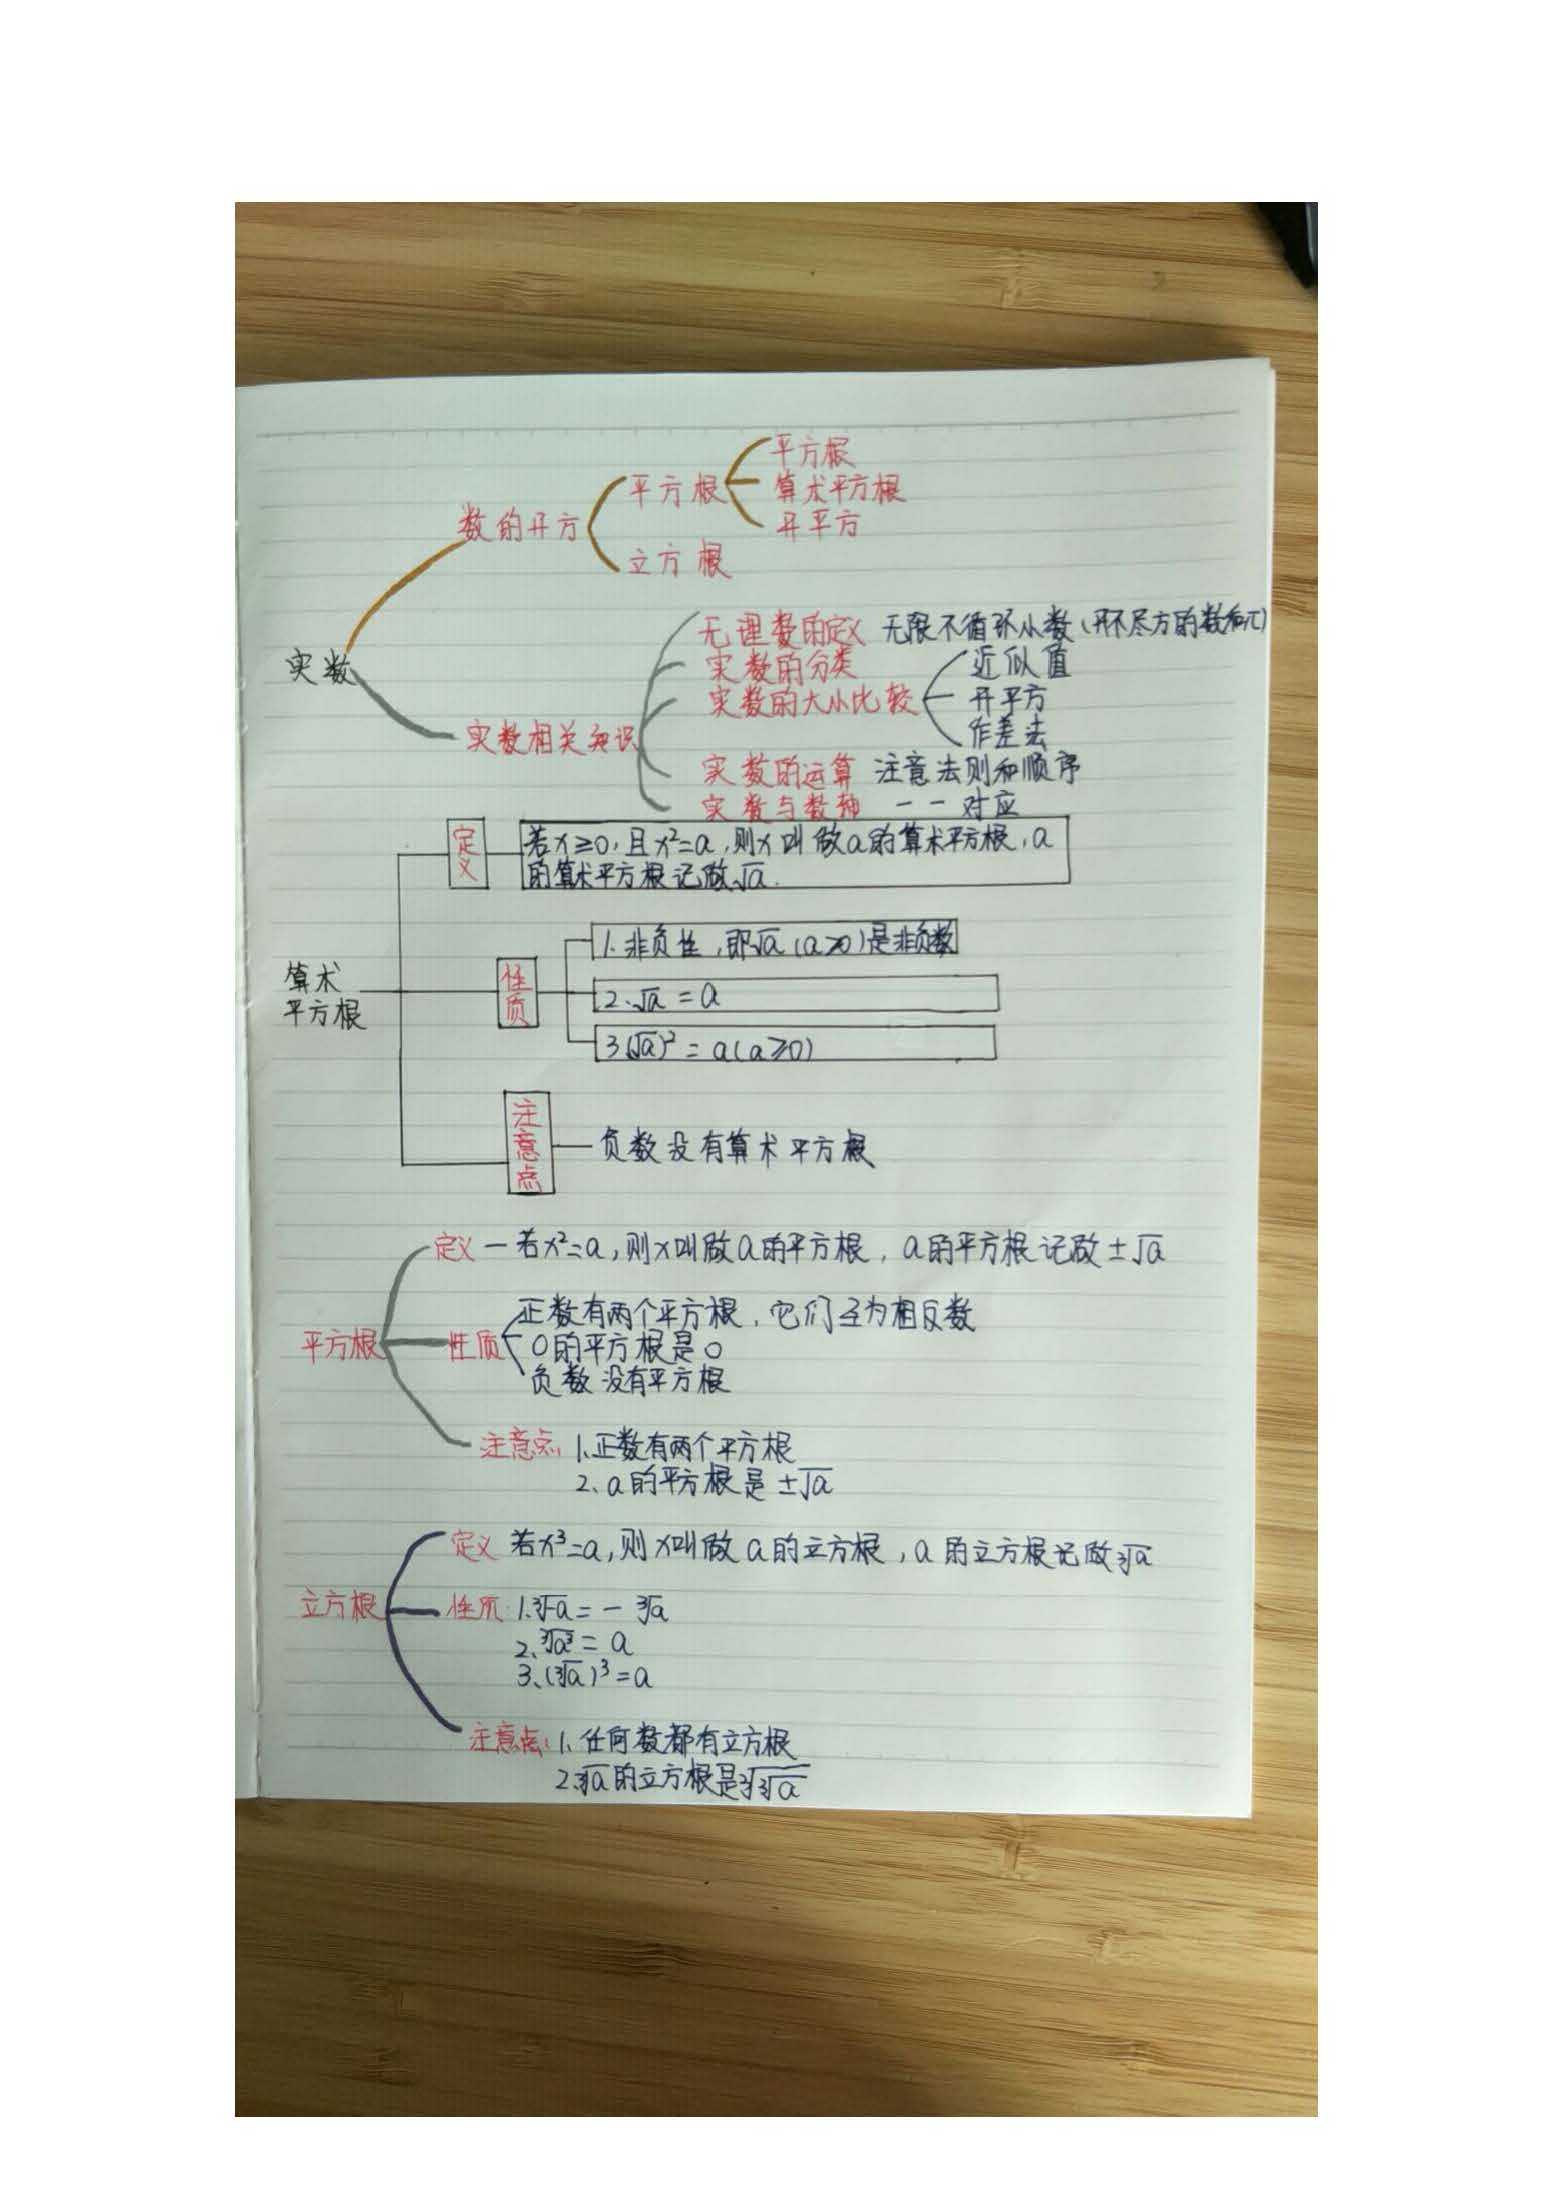 平方根
平方根
算术平方根
数的开方
开平方
立方根
无理数的定义 无限不循环小数(开不尽方的数和π)
实数的分类
近似值
实数
实数的大小比较
开平方
实数相关知识
作差法
实数的运算 注意法则和顺序
实数与数轴 一一对应
定义
若x≥0,且x²=a,则x叫做a的算术平方根,a
的算术平方根记做√a.
1.非负性,即√a(a≥0)是非负数
算术
平方根
性质
2.√a=a
3(√a)²=a(a≥0)
注意点
负数没有算术平方根
定义—若x²=a,则x叫做a的平方根,a的平方根记做±√a
正数有两个平方根,它们互为相反数
平方根 性质 0的平方根是0
负数没有平方根
注意点:1、正数有两个平方根
2、a的平方根是±√a
定义 若x³=a,则x叫做a的立方根,a的立方根记做∛a
立方根 性质 1.∛-a=-∛a
2、∛a³=a
3、(∛a)³=a
注意点:1、任何数都有立方根
2.∛a的立方根是∛∛a